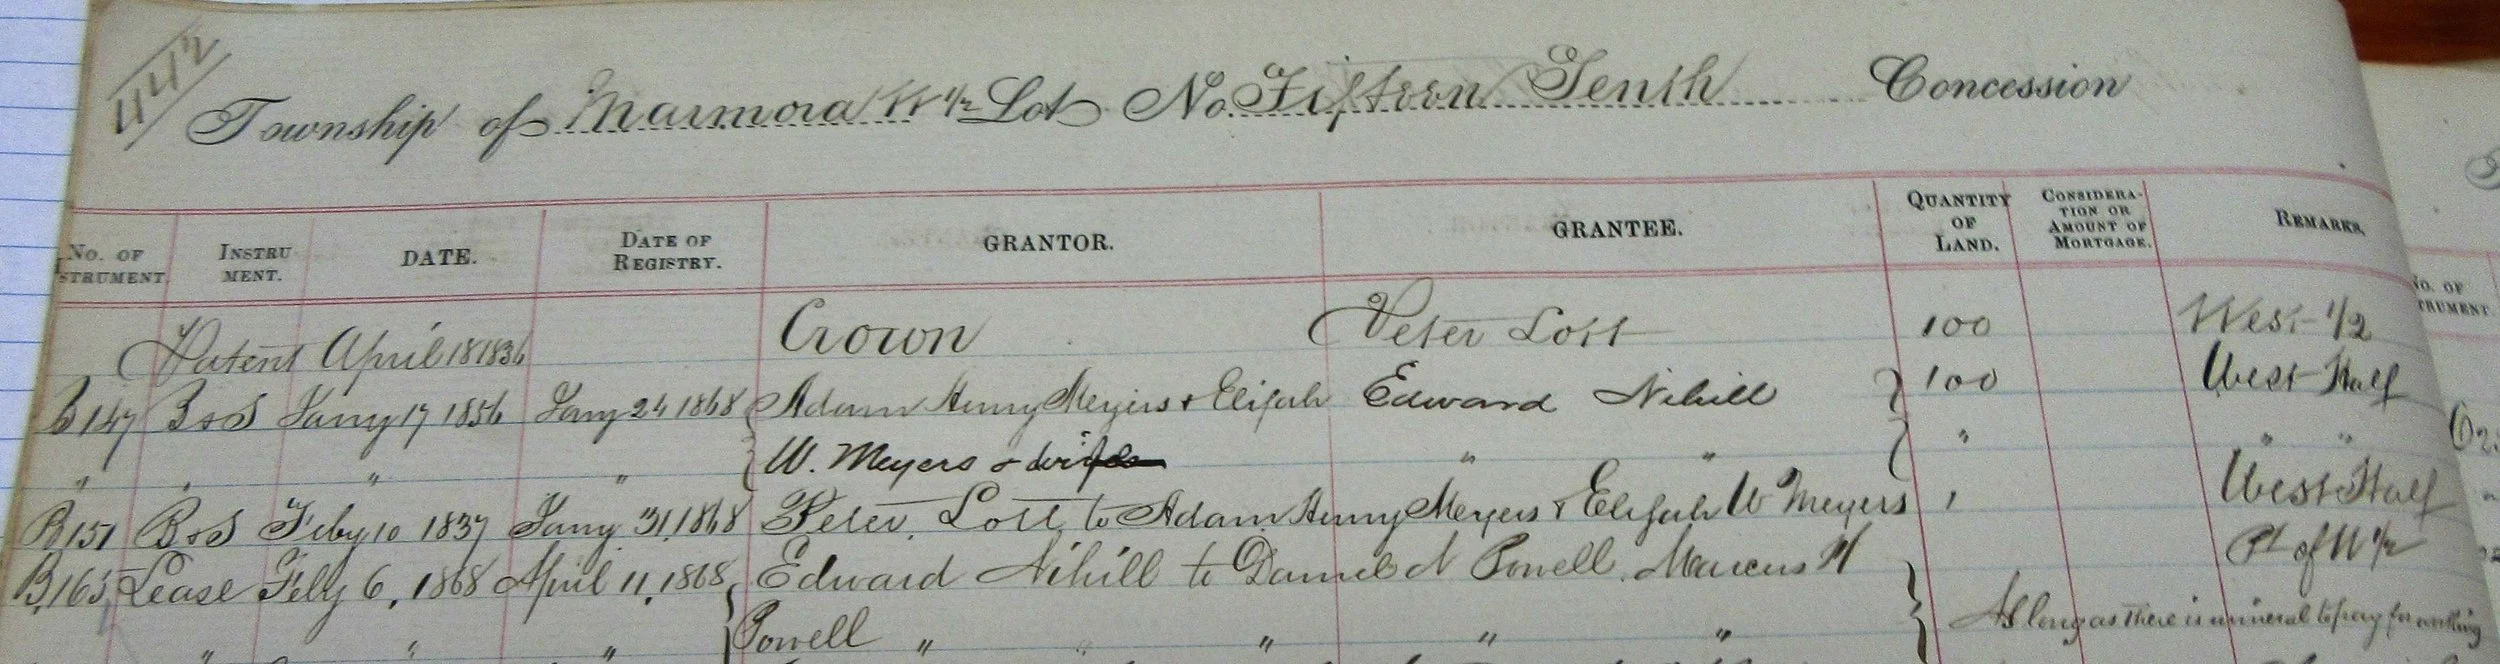 442
Township of Marmora W ½ Lot No. Fifteen Tenth Concession
No. of strument. Instru ment. Date. Date of Registry. Grantor. Grantee. Quantity of Land. Considera- tion or Amount of Mortgage. Remarks.
No. of trument
Patent April 18 1836 Crown Peter Lott 100 West ½
B147 B&S Jany 17 1856 Jany 24 1868 Adam Henry Meyers & Elijah Edward Nihill 100 West Half
" " " " W. Meyers & wife " " " " "
B151 B&S Feby 10 1837 Jany 31, 1868 Peter Lott to Adam Henry Meyers & Elijah W Meyers " West Half
B165 Lease Feby 6, 1868 April 11, 1868 Edward Nihill to Daniel N Powell, Marcus H Pt of W ½
" " " Powell " " " " " As long as there is mineral to pay for working